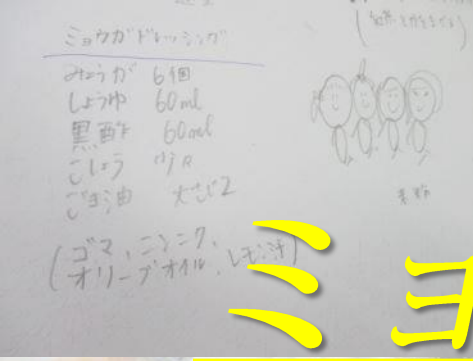 ミョウガドレッシング
みょうが 6個
しょうゆ 60ml
黒酢 60ml
こしょう 少々
ごま油 大さじ2
(ゴマ、ニンニク、
オリーブオイル、レモン汁)
ミョ